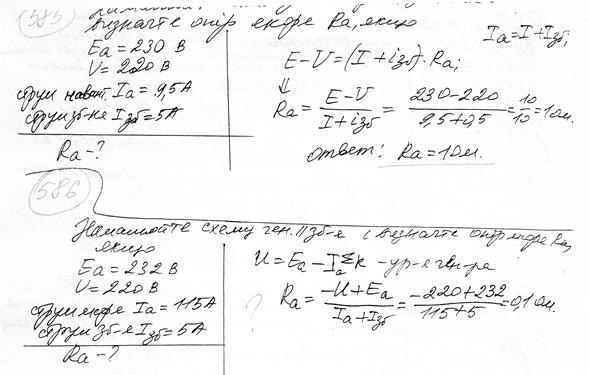 1585
Визначте опір якоря Rа, якщо
Ea = 230 В
V = 220 В
струм навант. Ia = 9,5 А
струм зб-не Iзб = 5 А
Ra - ?
Ia = I + Iзб;
E - V = (I + iзб) · Ra;
⇓
Ra = E - V / I + iзб = 230 - 220 / 9,5 + 0,5 = 10 / 10 = 1 Ом.
ответ: Ra = 1 Ом.
586
Намалюйте схему ген. || зб-я і визначте опір якоря Ra,
якщо
Ea = 232 В
U = 220 В
струм якоря Ia = 115 А
струм зб-я Iзб = 5 А
Ra - ?
U = Ea - Ia ΣR - ур-е ген-ра
Ra = -U + Ea / Ia + Iзб = -220 + 232 / 115 + 5 = 0,1 Ом.